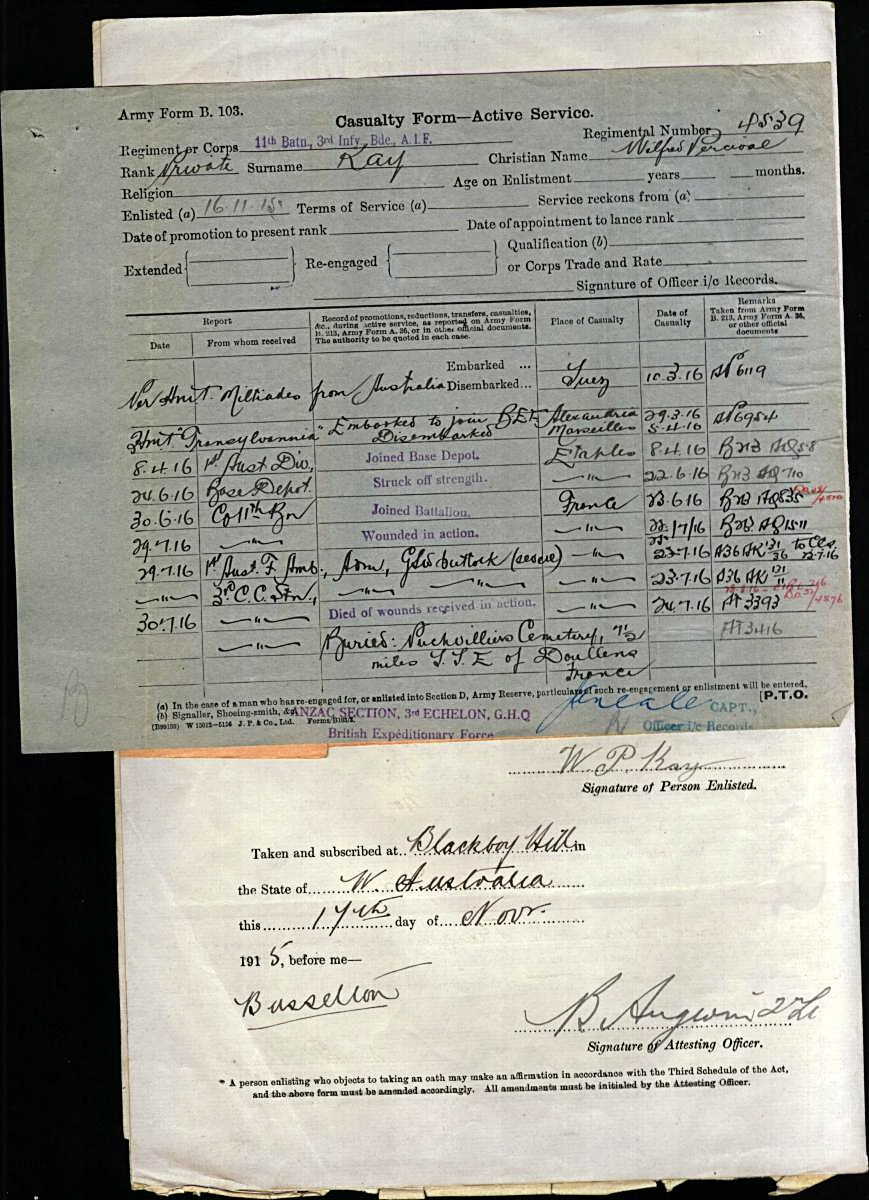 Army Form B. 103.
Casualty Form—Active Service.
Regiment or Corps 11th Batn., 3rd Infy. Bde., A.I.F. Regimental Number 4539
Rank Private Surname Kay Christian Name Wilfred Percival
Religion Age on Enlistment years months.
Enlisted (a) 16.11.15 Terms of Service (a) Service reckons from (a)
Date of promotion to present rank Date of appointment to lance rank
Extended Re-engaged Qualification (b)
or Corps Trade and Rate
Signature of Officer i/c Records.
Report
Date From whom received
Record of promotions, reductions, transfers, casualties,
&c., during active service, as reported on Army Form
B. 213, Army Form A. 36, or in other official documents.
The authority to be quoted in each case.
Place of Casualty
Date of
Casualty
Remarks
Taken from Army Form
B. 213, Army Form A. 36,
or other official
documents
Embarked ...
Per Hmt. Miltiades from Australia Disembarked... Suez 10.3.16 6119
Hmt "Transylvannia" Embarked to join BEF Alexandria 29.3.16 6954
Disembarked Marseilles 5.4.16
8.4.16 1st Aust Div, Joined Base Depot. Etaples 8.4.16
24.6.16 Base Depot. Struck off strength. —"— 22.6.16
30.6.16 Co 11th Bn Joined Battalion. France 23.6.16
29.7.16 —"— Wounded in action. —"— 22/7/16
29.7.16 1st Aust. F. Amb., Adm, GSW buttock (severe) —"— 23.7.16 A36 to CCS. 23.7.16
—"— 3rd C.C. Stn., —"— —"— —"— 23.7.16 A36
30.7.16 —"— Died of wounds received in action. —"— 24.7.16 3393
—"— Buried: Puchvilliers Cemetery, 7½ 3416
miles S.S.E of Doullens
France
(a) In the case of a man who has re-engaged for, or enlisted into Section D, Army Reserve, particulars of such re-engagement or enlistment will be entered.
(b) Signaller, Shoeing-smith, &c. [P.T.O.
ANZAC SECTION, 3rd ECHELON, G.H.Q
CAPT.,
British Expeditionary Force
Officer i/c Records
W. P. Kay
Signature of Person Enlisted.
Taken and subscribed at Blackboy Hill in
the State of W. Australia
this 17th day of Novr.
1915, before me—
Busselton
B. Angwin 2nd Lt
Signature of Attesting Officer.
* A person enlisting who objects to taking an oath may make an affirmation in accordance with the Third Schedule of the Act,
and the above form must be amended accordingly. All amendments must be initialed by the Attesting Officer.